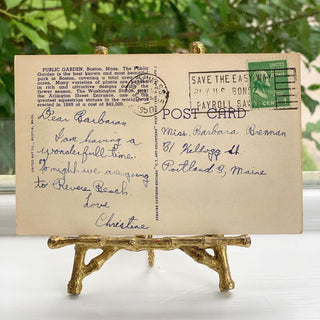 PUBLIC GARDEN, Boston, Mass. The Public
Garden is the best known and most beautiful
park in Boston, covering a total area of
acres. Many varieties of plants are
in rich and attractive designs during the
flower season. The Washington
the Arlington Street Entrance, one of the
greatest equestrian statues in the world was
erected in 1869 at a cost of $42,000.
Dear Barbara
I am having a
wonderful time.
Tonight we are going
to Revere Beach.
Love
Christine
SAVE THE EASY WAY
BUY U.S. BONDS
PAYROLL SAVINGS
POST CARD
Miss Barbara Brennan
Kellogg St.
Portland 5, Maine